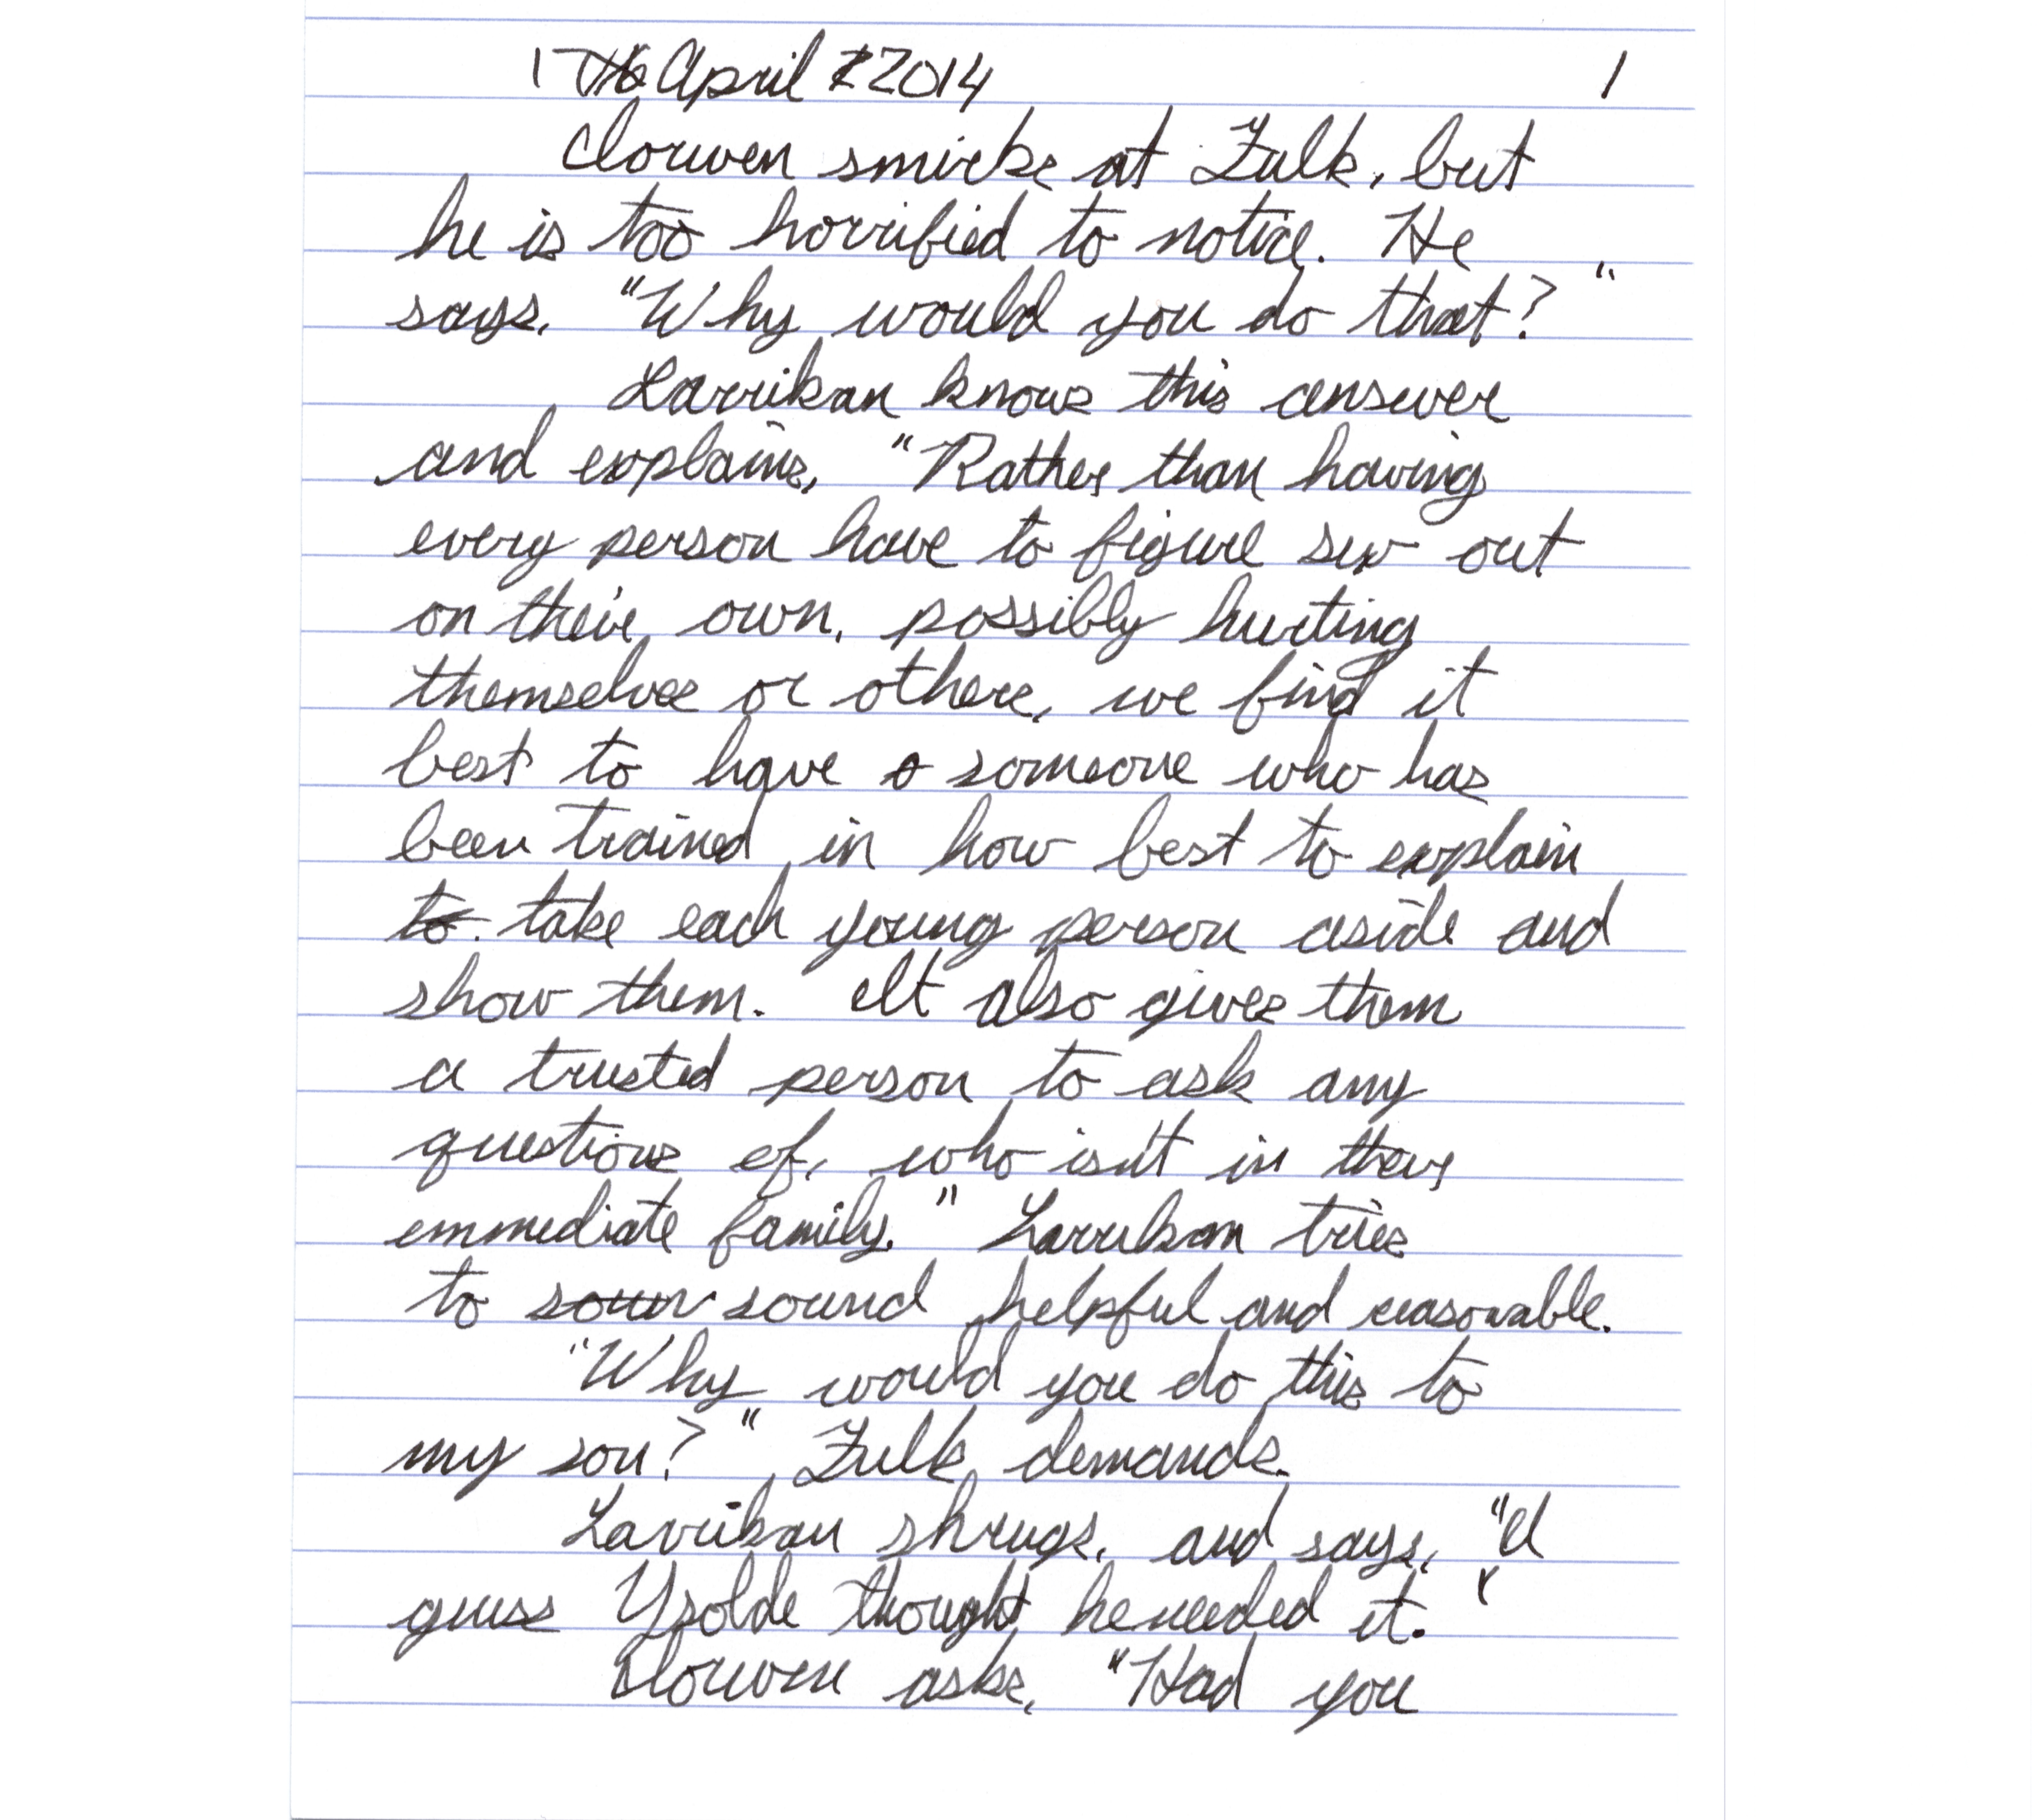 17 April 2014 1
Iorwen smirks at Fulk, but
he is too horrified to notice. He
says, "Why would you do that?"
Larrikan knows this answer
and explains, "Rather than having
every person have to figure sex out
on their own, possibly hurting
themselves or others, we find it
best to have someone who has
been trained in how best to explain
to take each young person aside and
show them. It also gives them
a trusted person to ask any
questions of, who isn't in their
immediate family." Larrikan tries
to soun sound helpful and reasonable.
"Why would you do this to
my son?" Fulk demands.
Larrikan shrugs, and says, "I
guess Ysolde thought he needed it."
Iorwen asks, "Had you